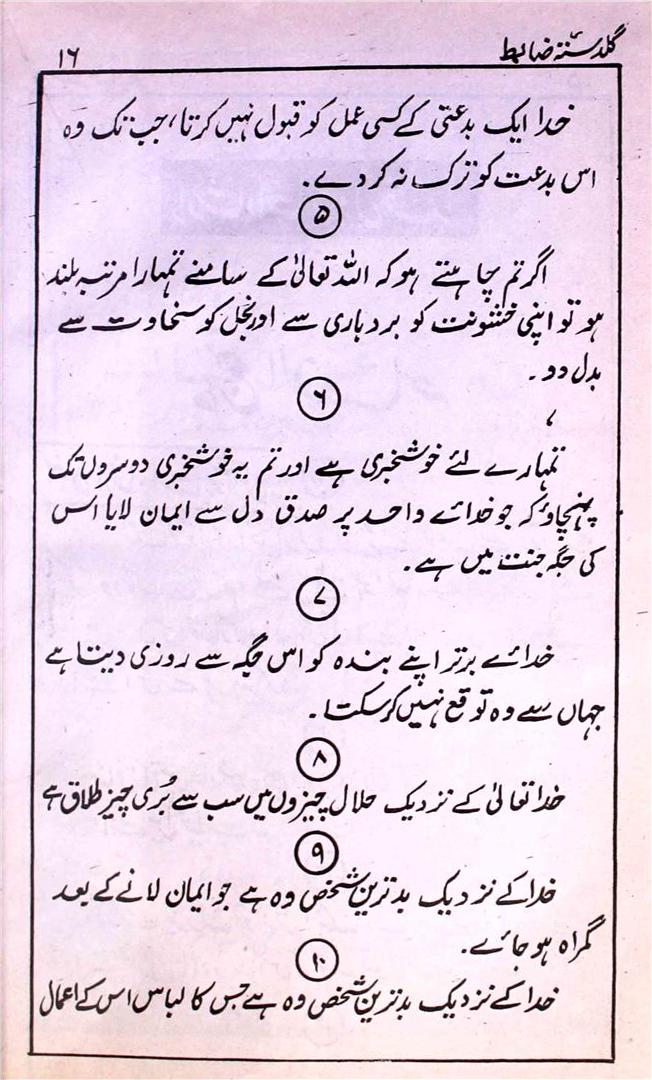 گلدستۂ ضابط ۱۶
خدا ایک بدعتی کے کسی عمل کو قبول نہیں کرتا، جب تک وہ
اس بدعت کو ترک نہ کر دے۔
۵
اگر تم چاہتے ہو کہ اللہ تعالیٰ کے سامنے تمہارا مرتبہ بلند
ہو تو اپنی خشونت کو بردباری سے اور بخل کو سخاوت سے
بدل دو۔
۶
تمہارے لئے خوشخبری ہے اور تم یہ خوشخبری دوسروں تک
پہنچاؤ کہ جو خدائے واحد پر صدق دل سے ایمان لایا اس
کی جگہ جنت میں ہے۔
۷
خدائے برتر اپنے بندہ کو اس جگہ سے روزی دیتا ہے
جہاں سے وہ توقع نہیں کر سکتا۔
۸
خدا تعالیٰ کے نزدیک حلال چیزوں میں سب سے بُری چیز طلاق ہے
۹
خدا کے نزدیک بدترین شخص وہ ہے جو ایمان لانے کے بعد
گمراہ ہو جائے۔
۱۰
خدا کے نزدیک بدترین شخص وہ ہے جس کا لباس اس کے اعمال